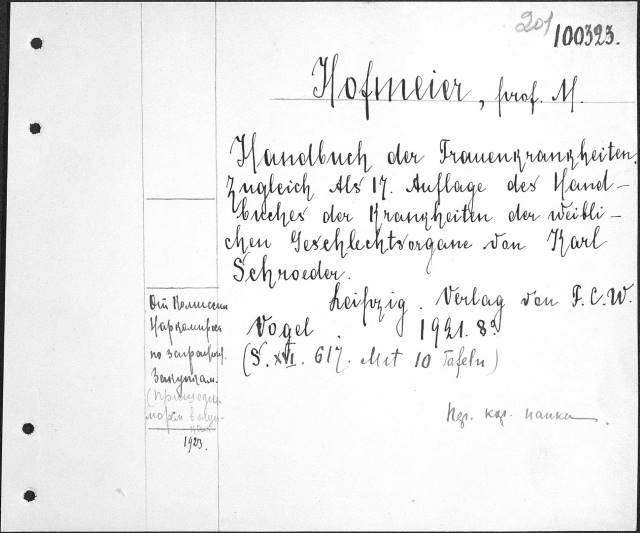 201
100323.
Hofmeier, prof. M.
Handbuch der Frauenkrankheiten.
Zugleich Als 17. Auflage des Hand-
buches der Krankheiten der weibli-
chen Geschlechtsorgane von Karl
Schroeder.
Leipzig. Verlag von F.C.W.
Vogel. 1921. 8º
(S. XVI. 617. Met 10 Tafeln)
От Комиссии
Наркомпроса
по заграничн.
Закупкам.
1923.